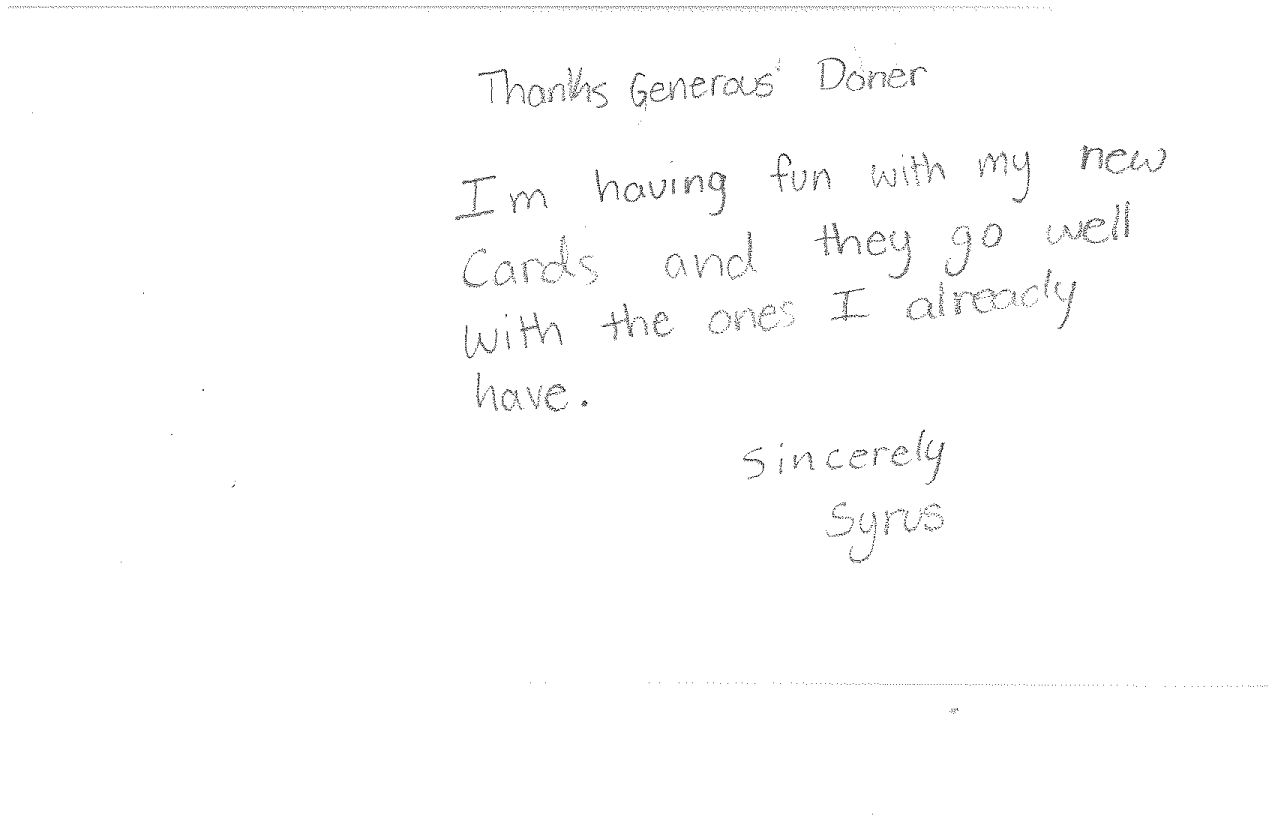 Thanks Generous Doner
Im having fun with my new
Cards and they go well
with the ones I already
have.
Sincerely
Syrus